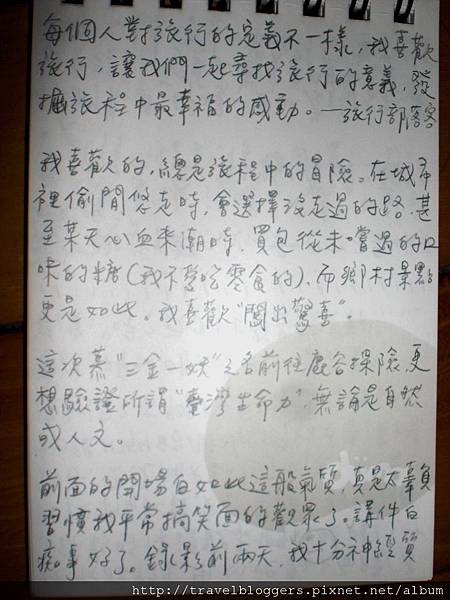 每個人對旅行的定義不一樣，我喜歡
旅行，讓我們一起尋找旅行的意義，發
掘旅程中最幸福的感動。—旅行部落客
我喜歡的，總是旅程中的冒險。在城市
裡偷閒悠走時，會選擇沒走過的路，甚
至某天心血來潮時，買包從未嚐過的口
味的糖(我不常吃零食的)，而鄉村景點
更是如此。我喜歡"闖出驚喜"。
這次慕"三金一妖"之名前往鹿谷探險，更
想驗證所謂"臺灣生命力"，無論是自然
或人文。
前面的開場白如此這般氣質，真是太辜負
習慣我平常搞笑面的觀眾了。講件白
痴事好了。錄影前兩天，我十分神經質
http://travelbloggers.pixnet.net/blog